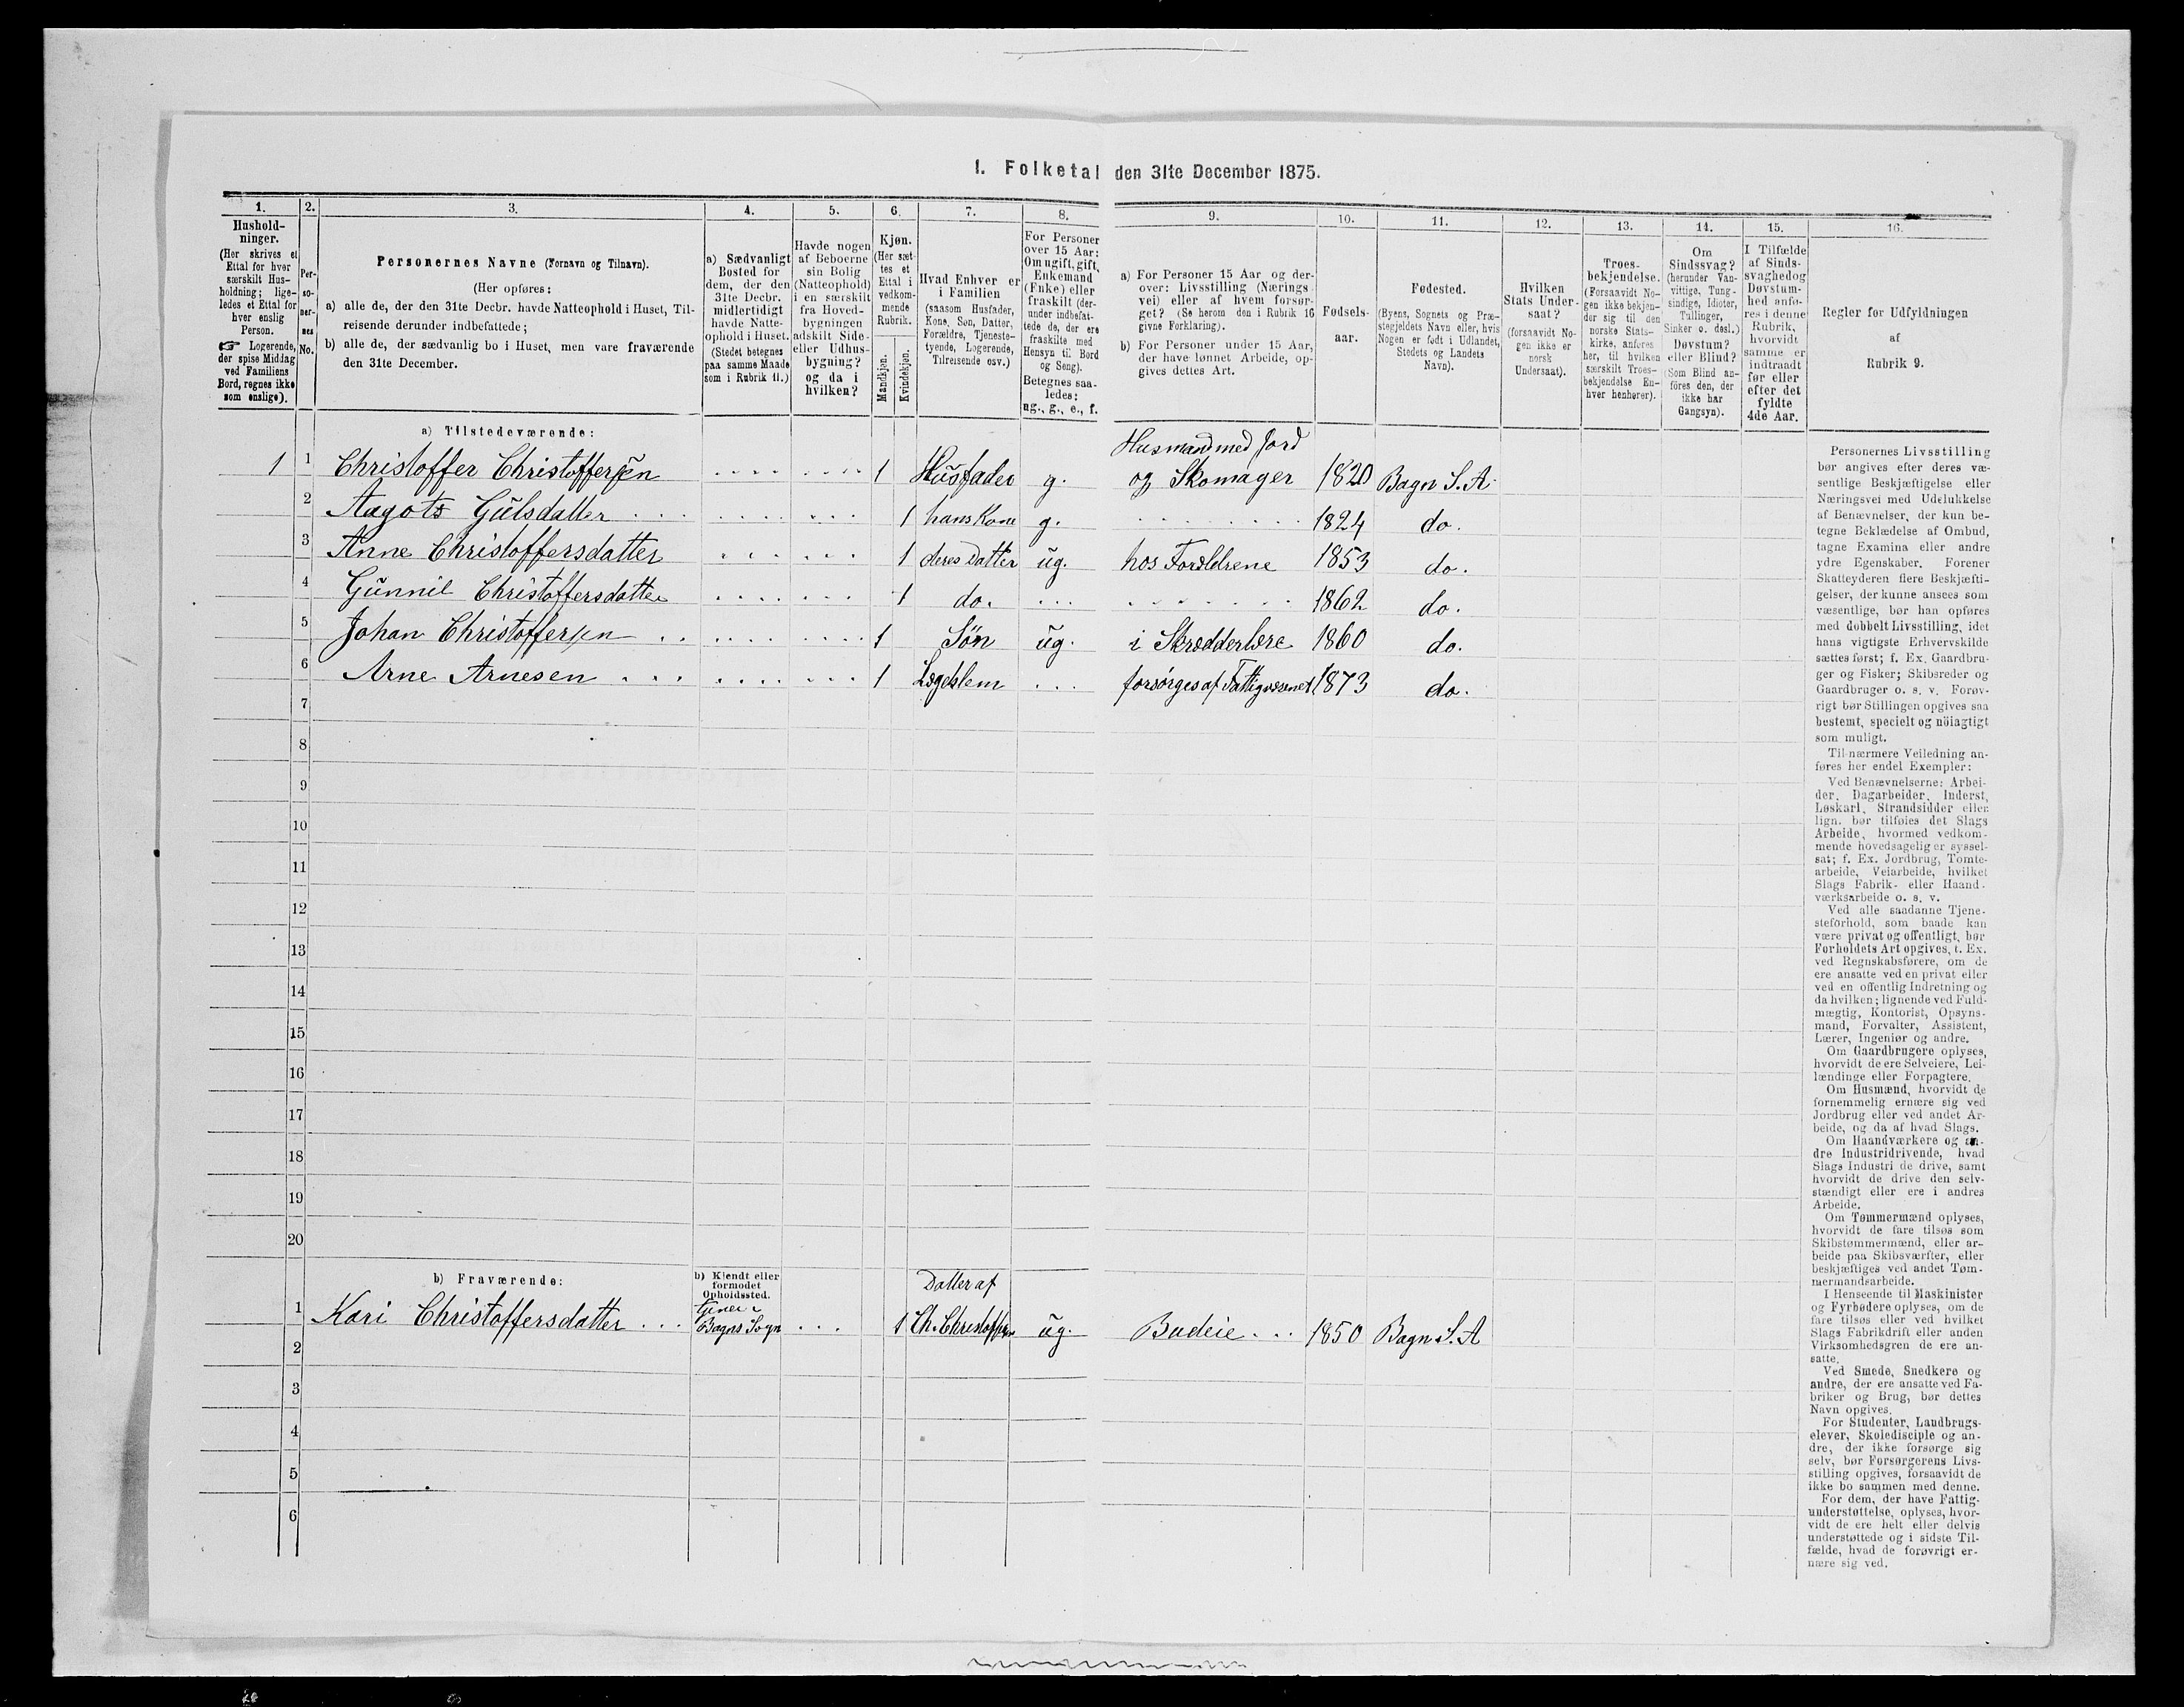 1. Folketal den 31te December 1875.
1. 2. 3. 4. 5. 6. 7. 8. 9. 10. 11. 12. 13. 14. 15. 16.
Hushold-
ninger.
(Her skrives et
Ettal for hver
særskilt Hus-
holdning; lige-
ledes et Ettal for
hver enslig
Person.
☞ Logerende,
der spise Middag
ved Familiens
Bord, regnes ikke
som enslige).
Per-
so-
ner-
nes
No.
Personernes Navne (Fornavn og Tilnavn).
(Her opføres:
a) alle de, der den 31te Decbr. havde Natteophold i Huset, Til-
reisende derunder indbefattede;
b) alle de, der sædvanlig bo i Huset, men vare fraværende
den 31te December.
a) Sædvanligt
Bosted for
dem, der den
31te Decbr.
midlertidigt
havde Natte-
ophold i Huset.
(Stedet betegnes
paa samme Maade
som i Rubrik 11.)
Havde nogen
af Beboerne
sin Bolig
(Natteophold)
i en særskilt
fra Hoved-
bygningen
adskilt Side-
eller Udhus-
bygning?
og da i
hvilken?
Kjøn.
(Her sæt-
tes et
Ettal i
vedkom-
mende
Rubrik.
Mandkjøn.
Kvindekjøn.
Hvad Enhver er
i Familien
(saasom Husfader,
Kone, Søn, Datter,
Forældre, Tjeneste-
tyende, Logerende,
Tilreisende osv.)
For Personer
over 15 Aar:
Om ugift, gift,
Enkemand
(Enke) eller
fraskilt (der-
under indbefat-
tede de, der ere
fraskilte med
Hensyn til Bord
og Seng).
Betegnes saa-
ledes:
ug., g., e., f.
a) For Personer 15 Aar og der-
over: Livsstilling (Nærings-
vei) eller af hvem forsør-
get? (Se herom den i Rubrik 16
givne Forklaring).
b) For Personer under 15 Aar,
der have lønnet Arbeide, op-
gives dettes Art.
Fødsels-
aar.
Fødested.
(Byens, Sognets og Præ-
stegjeldets Navn eller, hvis
Nogen er født i Udlandet,
Stedets og Landets
Navn).
Hvilken
Stats Under-
saat?
(forsaavidt No-
gen ikke er
norsk
Undersaat).
Troes-
bekjendelse.
(Forsaavidt No-
gen ikke bekjen-
der sig til den
norske Stats-
kirke, anføres
her, til hvilken
særskilt Troes-
bekjendelse En-
hver henhører).
Om
Sindssvag?
(herunder Van-
vittige, Tung-
sindige, Idioter,
Tullinger,
Sinker o. desl.)
Døvstum?
eller Blind?
(Som Blind an-
føres den, der
ikke har
Gangsyn).
I Tilfælde
af Sinds-
svaghed og
Døvstum-
hed anfø-
res i denne
Rubrik,
hvorvidt
samme er
indtraadt
før eller
efter det
fyldte
4de Aar.
Regler for Udfyldningen
af
Rubrik 9.
a) Tilstedeværende:
Husmand med Jord
1 1 Christoffer Christoffersen 1 Husfader g. og Skomager 1820 Bagn S. A
2 Aagots Gulsdatter 1 hans Kone g. 1824 do.
3 Anne Christoffersdatter 1 deres Datter ug. hos Forældrene 1853 do.
4 Gunnil Christoffersdatter 1 do. 1862 do.
5 Johan Christoffersen 1 Søn ug. i Skrædderlære 1860 do.
6 Arne Arnesen 1 Lægdslem forsørges af Fattigvæsenet 1873 do.
7
8
9
10
11
12
13
14
15
16
17
18
19
20
b) Fraværende:
b) Kjendt eller
formodet
Opholdssted.
Datter af
1 Kari Christoffersdatter Bagns Sogn 1 Ch. Christoffersen ug. Budeie 1850 Bagn S. A
2
3
4
5
6
Personernes Livsstilling
bør angives efter deres væ-
sentlige Beskjæftigelse eller
Næringsvei med Udelukkelse
af Benævnelser, der kun be-
tegne Beklædelse af Ombud,
tagne Examina eller andre
ydre Egenskaber. Forener
Skatteyderen flere Beskjæfti-
gelser, der kunne ansees som
væsentlige, bør han opføres
med dobbelt Livsstilling, idet
hans vigtigste Erhvervskilde
sættes først; f. Ex. Gaardbru-
ger og Fisker; Skibsreder og
Gaardbruger o. s. v. Forøv-
rigt bør Stillingen opgives saa
bestemt, specielt og nöiagtigt
som muligt.
Til nærmere Veiledning an-
føres her endel Exempler:
Ved Benævnelserne: Arbei-
der, Dagarbeider, Inderst,
Løskarl, Strandsidder eller
lign. bør tilføies det Slags
Arbeide, hvormed vedkom-
mende hovedsagelig er syssel-
sat; f. Ex. Jordbrug, Tomte-
arbeide, Veiarbeide, hvilket
Slags Fabrik- eller Haand-
værksarbeide o. s. v.
Ved alle saadanne Tjene-
steforhold, som baade kan
være privat og offentligt, bør
Forholdets Art opgives, f. Ex.
ved Regnskabsførere, om de
ere ansatte ved en privat eller
ved en offentlig Indretning og
da hvilken; lignende ved Fuld-
mægtig, Kontorist, Opsyns-
mand, Forvalter, Assistent,
Lærer, Ingeniør og andre.
Om Gaardbrugere oplyses,
hvorvidt de ere Selveiere, Lei-
lændinge eller Forpagtere.
Om Husmænd, hvorvidt de
fornemmelig ernære sig ved
Jordbrug eller ved andet Ar-
beide, og da af hvad Slags.
Om Haandværkere og an-
dre Industridrivende, hvad
Slags Industri de drive, samt
hvorvidt de drive den selv-
stændigt eller ere i andres
Arbeide.
Om Tømmermænd oplyses,
hvorvidt de fare tilsøs som
Skibstømmermænd, eller ar-
beide paa Skibsværfter, eller
beskjæftiges ved andet Tøm-
mermandsarbeide.
I Henseende til Maskinister
og Fyrbødere oplyses, om de
fare tilsøs eller ved hvilket
Slags Fabrikdrift eller anden
Virksomhedsgren de ere an-
satte.
Ved Smede, Snedkere og
andre, der ere ansatte ved Fa-
briker og Brug, bør dettes
Navn opgives.
For Studenter, Landbrugs-
elever, Skoledisciple og an-
dre, der ikke forsørge sig
selv, bør Forsørgerens Livs-
stilling opgives, forsaavidt de
ikke bo sammen med denne.
For dem, der have Fattig-
understøttelse, oplyses, hvor-
vidt de ere helt eller delvis
understøttede og i sidste Til-
fælde, hvad de forøvrigt er-
nære sig ved.